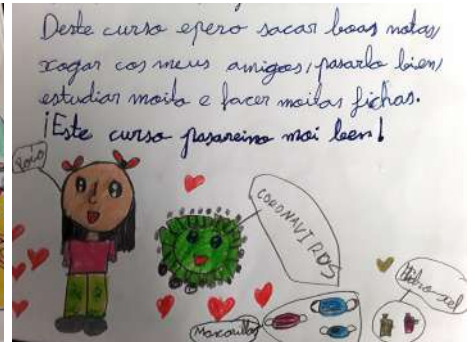 Deste curso epero sacar boas notas,
xogar cos meus amigos, pasarlo bien,
estudiar moito e facer moitas fichas.
¡Este curso pasareino moi ben!
Rocío
CORONAVIROS
Mascarillas
Hidroxel